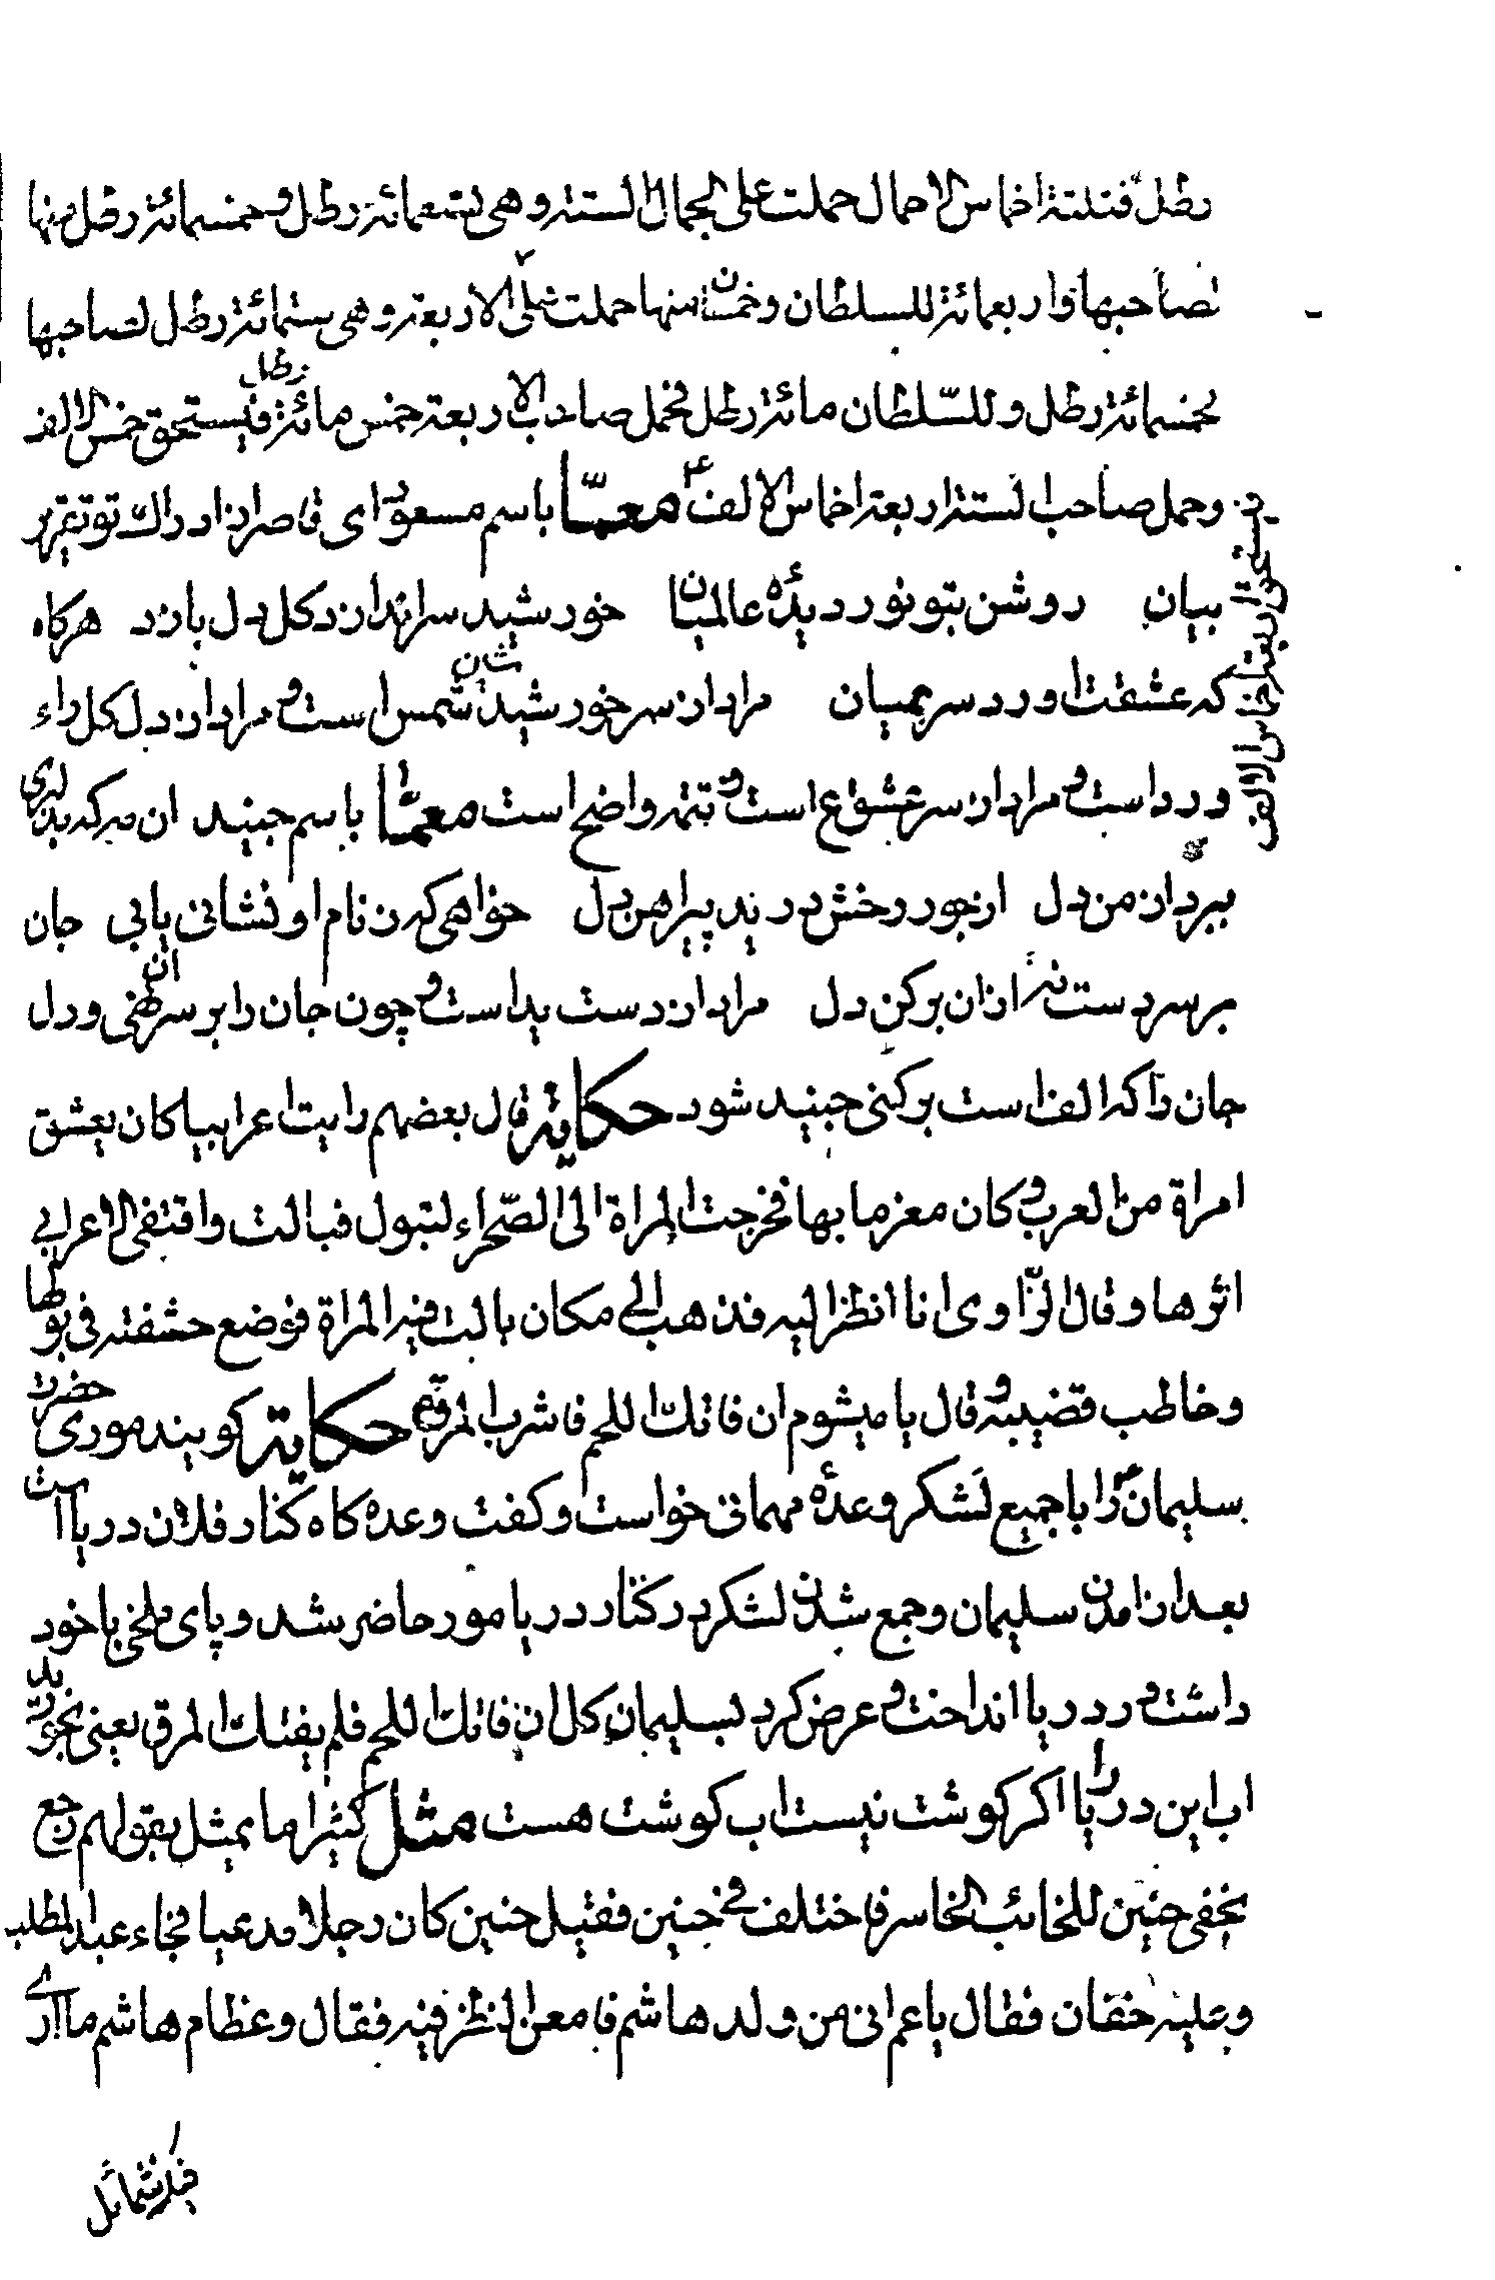 رطل فثلثة اخماس الاحمال حملت علی الجمال الستة وهی تسعمائة رطل وخمسمائة رطل منها
لصاحبها واربعمائة للسلطان وخمسان منها حملت علی الاربعة وهی ستمائة رطل لصاحبها
خمسمائة رطل وللسّلطان مائة رطل فحمل صاحب الاربعة خمس مائة رطل فیستحق خمس الالف
وحمل صاحب الستة اربعة اخماس الالف معمّا باسم مسعود ای قاصر از ادراك تو تقریر
فیستحق اربعة اخماس الالف
بیان روشن بتو نور دیدهٔ عالمیان خورشید سر اندازد کل دل بازد هرکاه
که عشقت اورد سر بمیان مراد از سر خورشید شین شمس است و مراد از دل کل راء
ورد است و مراد از سر عشق ع است و تتمه واضح است معمّا باسم جنید ان مه که بدلبری
ببرد از من دل از جور رخش درید پیراهن دل خواهی که ز نام او نشانی یابی جان
بر سر دست نه از ان برکن دل مراد از دست ید است و چون جان را بر سر ان نهی و دل
جان را که الف است برکنی جنید شود حکایة قال بعضهم رایت اعرابیا کان یعشق
امراة من العرب و کان مغرما بها فخرجت المراة الی الصّحراء لتبول فبالت واقتفی الاعرابی
اثرها وقال لّا وی انا انظر الیه فذهب الی مکان بالت فیه المراة فوضع حشفته فی بولها
وخاطب قضیبه و قال یا میشوم ان فاتك اللحم فاشرب المرقة حکایة کویند موری حضرت
سلیمان را با جمیع لشکر وعدهٔ مهمانی خواست و کفت وعده کاه کنار فلان دریا است
بعد از امدن سلیمان و جمع شدن لشکر در کنار دریا مور حاضر شد و پای ملخی با خود
داشت و در دریا انداخت و عرض کرد بسلیمان کل ان فاتك اللحم فلم یفتك المرق یعنی بخورید
اب این دریا را اکر کوشت نیست اب کوشت هست مثل کثیرا ما یمثل بقولهم رجع
بخفی حنین للخائب الخاسر فاختلف فی حنین فقیل حنین کان رجلا مدعیا فجاء عبد المطلب
وعلیه خفان فقال یا عم انی من ولد هاشم فامعن النظر فیه فقال وعظام هاشم ما اری
فیك شمائل